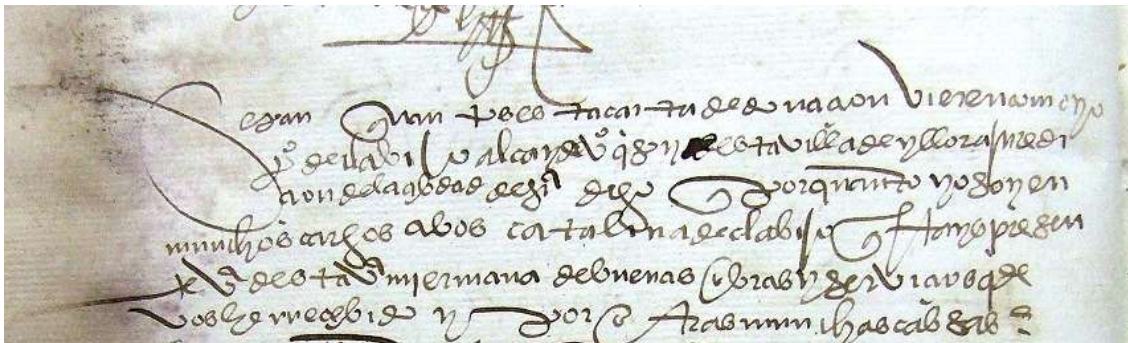 Sepan quantos esta carta de donaçion vieren como yo
po de clavijo alcayde vo q soy desta villa de yllora juredi
çion de la çibdad de gra digo que por quanto yo soy en
munchos cargos a vos catalina de clavijo que estays presen
te va desta va mi ermana de buenas obras y serviçios q de
vos he rreçebido y por otras munchas cabsas